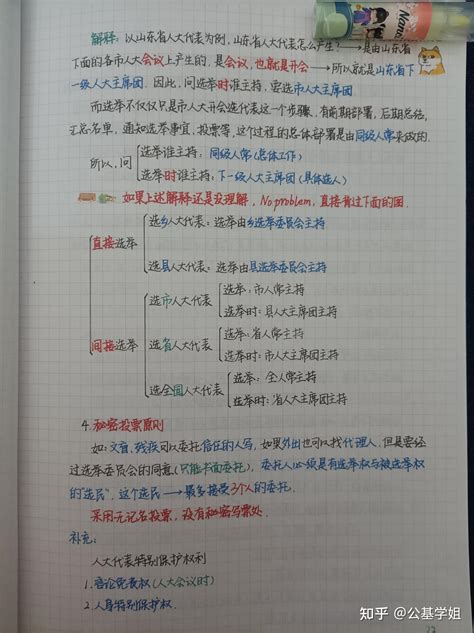 解释：以山东省人大代表为例，山东省人大代表怎么产生？→是由山东省
下面的各市人大会议上产生的，是会议，也就是开会→所以就是山东省下
一级人大主席团。因此，问选举时谁主持，要选市人大主席团
而选举不仅仅只是市人大开会选代表这一个步骤，有前期部署，后期总结，
汇总名单，通知选举事宜，投票等，这个过程的总体部署是由同级人常来做的．
所以，问
选举谁主持，同级人常(总体工作)
选举时谁主持，下一级人大主席团(具体选人)
如果上述解释还是没理解，No problem，直接背过下面的图．
直接选举
选乡人大代表：选举由乡选举委员会主持
选县人大代表：选举由县选举委员会主持
间接选举
选市人大代表
选举：市人常主持
选举时：县人大主席团主持
选省人大代表
选举：省人常主持
选举时：市人大主席团主持
选全国人大代表
选举：全人常主持
选举时：省人大主席团主持
4.秘密投票原则
如：文盲、残疾可以委托信任的人写，如果外出也可以找代理人，但是要经
过选举委员会的同意(只能书面委托)，委托人必须是有选举权与被选举权
的"选民"，这个选民→最多接受3个人的委托．
采用无记名投票，设有秘密写票处．
补充：
人大代表特别保护权利
1.言论免责权(人大会议时)
2.人身特别保护权．
知乎 @公基学姐